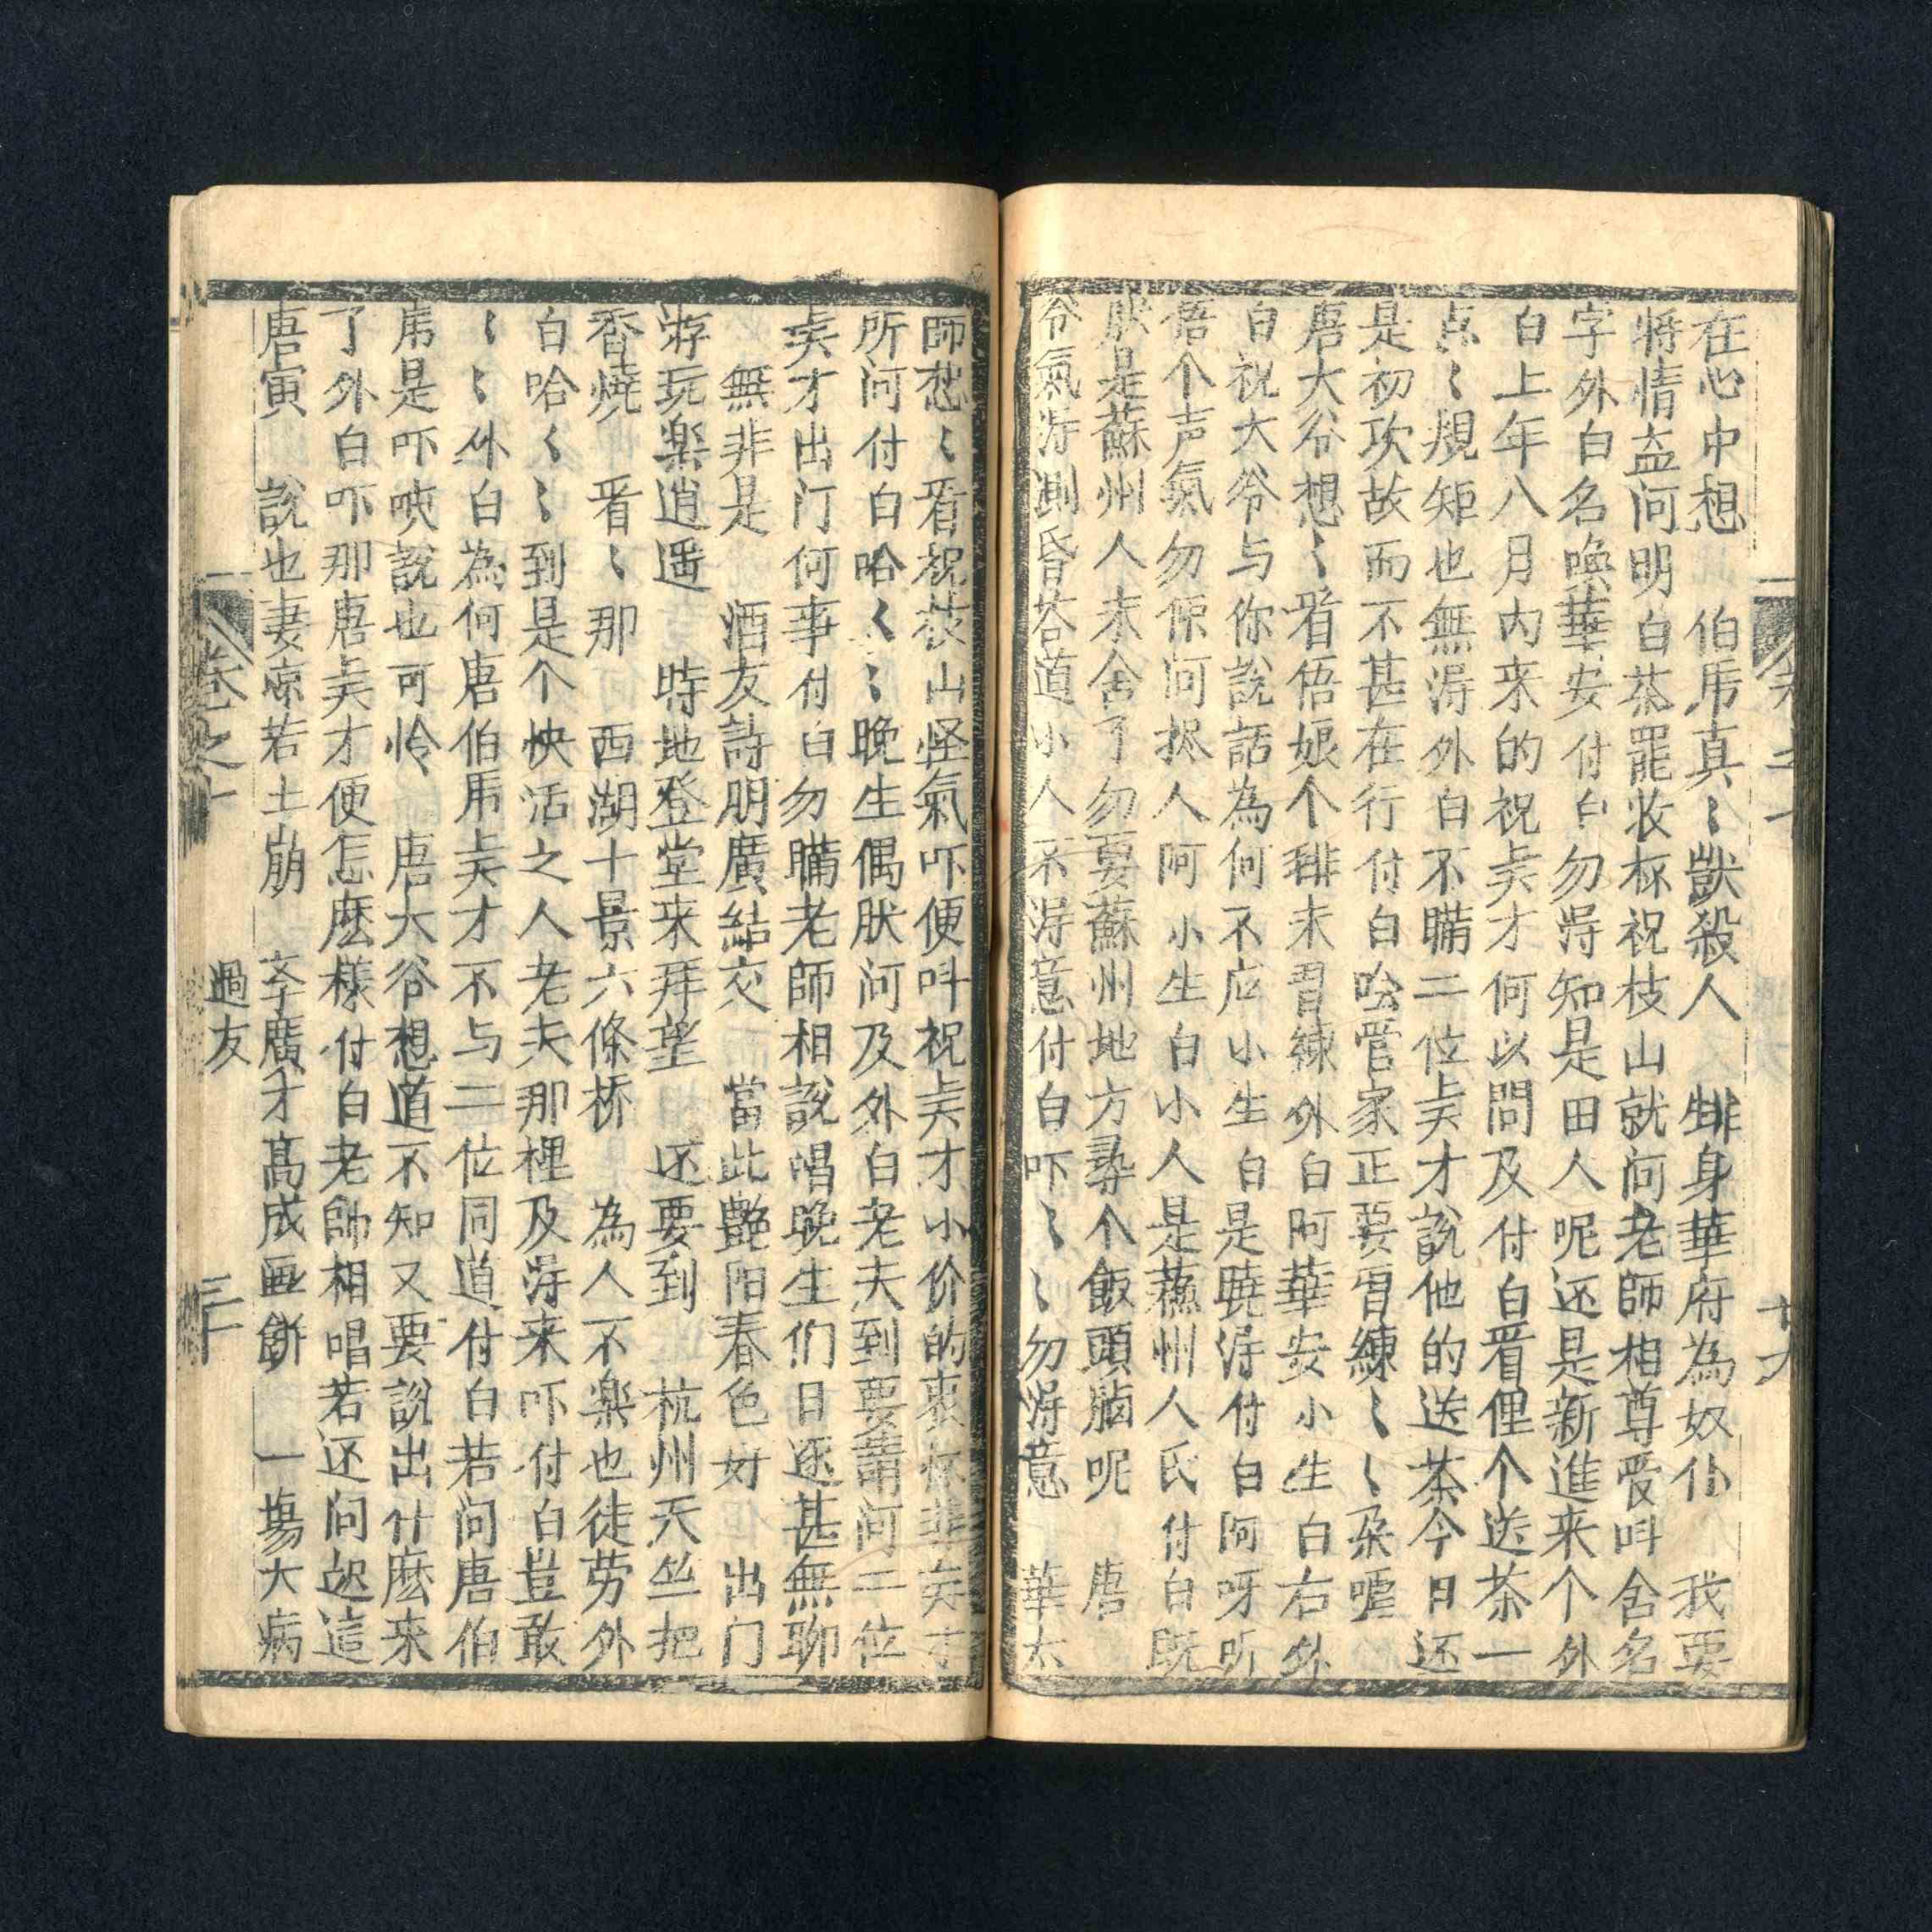 在心中想　伯虎真〻獃殺人　𤯝身華府為奴仆　我要
将情盍问明白茶罷收杯祝枝山就问老師相尊受呌舍名
字外白名喚華安付白勿淂知是田人呢还是新進来个外
白上年八月内来的祝㐰才何以問及付白㸔俚个送茶一
点〻規矩也無淂外白不瞞二位㐰才說他的送茶今日还
是初次故而不甚在行付白哙管家正要習練〻〻朶𡂿
唐大爷想〻㸔俉娘个𤯝未習練外白阿華安小生白右外
白祝大爷与你說話為何不应小生白是曉淂付白阿呀听
俉个声氣勿像河㧯人阿小生白小人是蘓州人氏付白既
肰是蘇州人末舍了勿要蘇州地方尋个飯頭腦呢　唐
爷氣淂測昏荅道小人不淂意付白吓〻〻勿淂意　華太
師愁〻㸔祝枝山怪氣吓便呌祝㐰才小价的衷怀㐰才
所问付白哈〻〻晚生偶肰问及外白老夫到要請问二位
㐰才出门何事付白勿瞞老師相說唱晚生们日逐甚無聊
無非是　酒友詩朋廣結交　當此艷阳春色好　出门
游玩楽逍遥　特地登堂来拜望　还要到　杭州天竺把
香燒　㸔〻那　西湖十景六條桥　為人不楽也徒劳外
白哈〻〻到是个快活之人老夫那裡及淂来吓付白豈敢
〻〻外白為何唐伯虎㐰才不与二位同道付白若问唐伯
虎是吓唊說也可怜　唐大爷想道不知又要說出什麽来
了外白吓那唐㐰才便怎麽樣付白老師相唱若还问起這
唐寅　說也妻凉若土崩　李廣才高成画餅　一場大病
卷之十
過友
三十